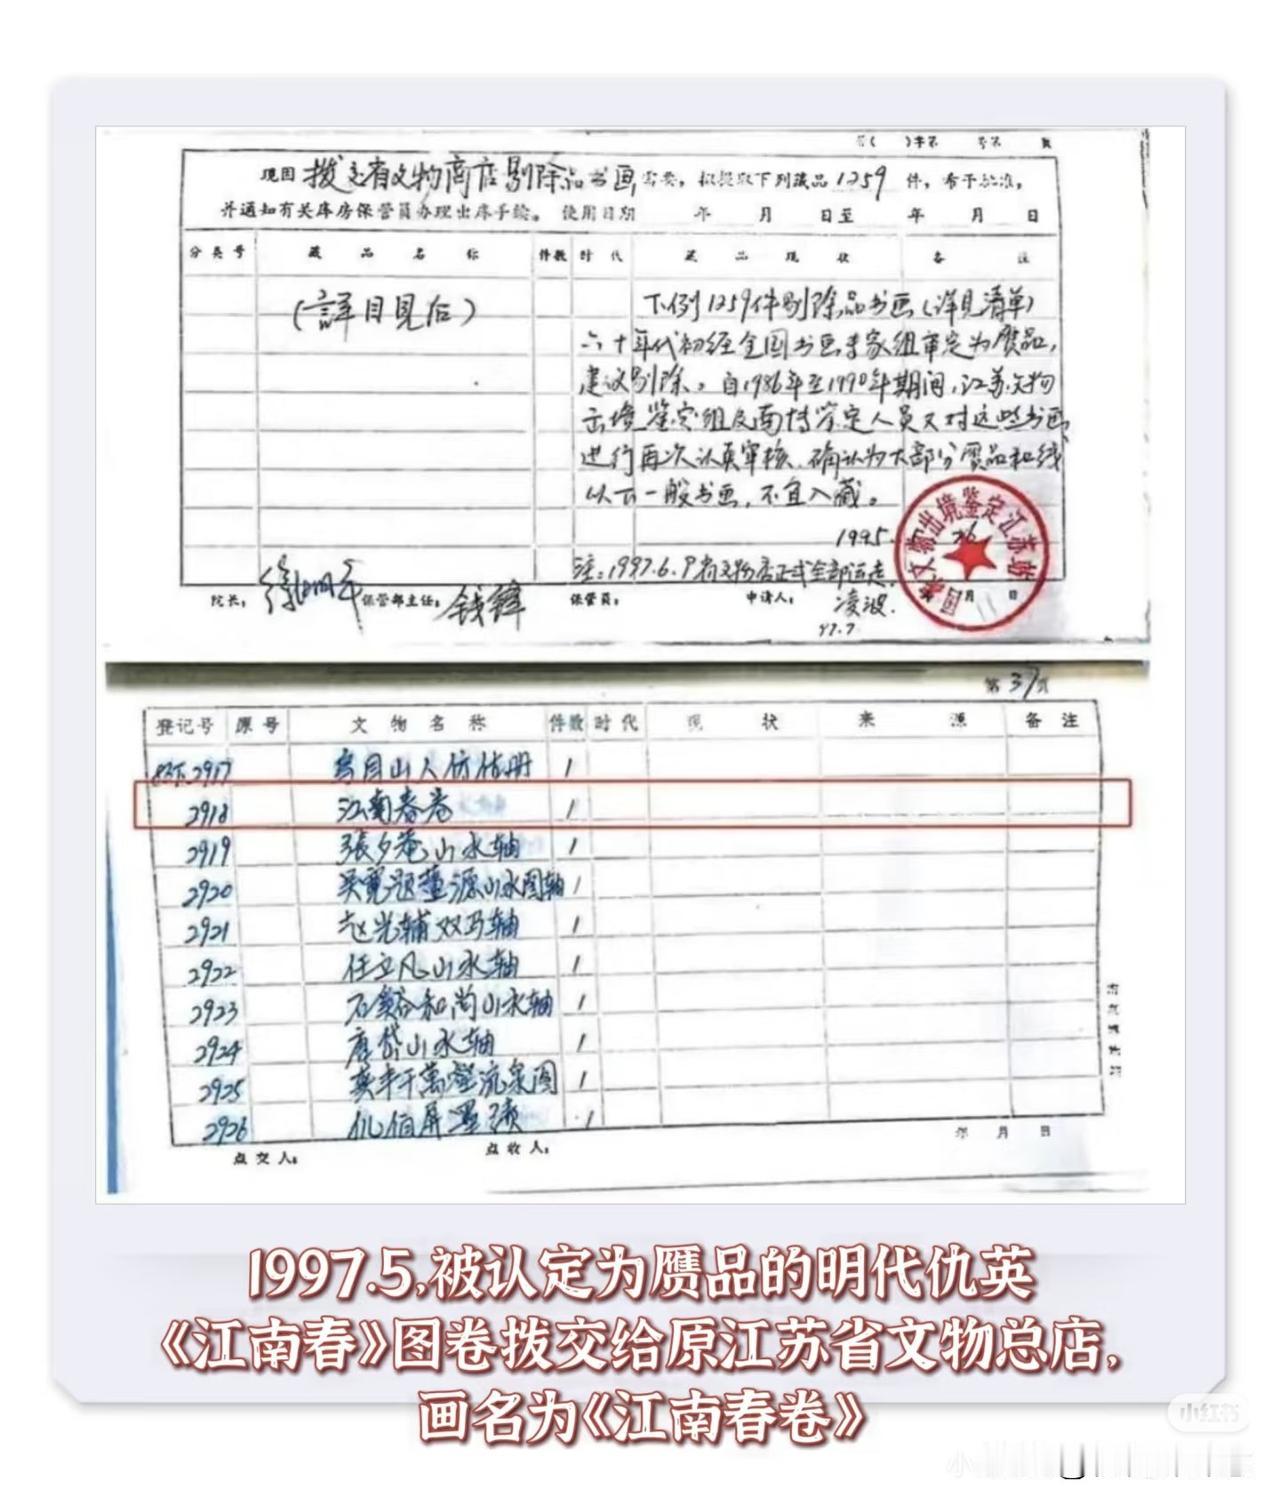 现因拨交省文物商店剔除品书画需要，拟提取下列藏品1259件，希予批准，
并通知有关库房保管员办理出库手续。使用日期 年 月 日至 年 月 日
分类号 藏品名称 件数 时代 藏品现状 备注
(詳目見后)
下列1259件剔除品书画(详见清单)
六十年代初经全国书画专家组审定为赝品，
建议剔除。自1986年至1990年期间，江苏文物
出境鉴定组及南博鉴定人员又对这些书画
进行再次认真审核，确认为大部分赝品和线
以下一般书画，不宜入藏。
1995.
注：1997.6.9省文物店正式全部运走
院长： 徐湖平 保管部主任： 钱锋 保管员： 申请人： 凌波 月 日
97.7.
第37页
登记号 原号 文物名称 件数 时代 现状 来源 备注
2917 1
2918 江南春卷 1
2919 張夕菴山水轴 1
2920 吴寬题董源山水图轴 1
2921 赵光辅双马轴 1
2922 任立凡山水轴 1
2923 石谿和尚山水轴 1
2924 唐岱山水轴 1
2925 千萬壑流泉图 1
2926 伊伯屏墨漬 1
点交人： 点收人： 年 月 日
1997.5,被认定为赝品的明代仇英
《江南春》图卷拨交给原江苏省文物总店，
画名为《江南春卷》
小红书